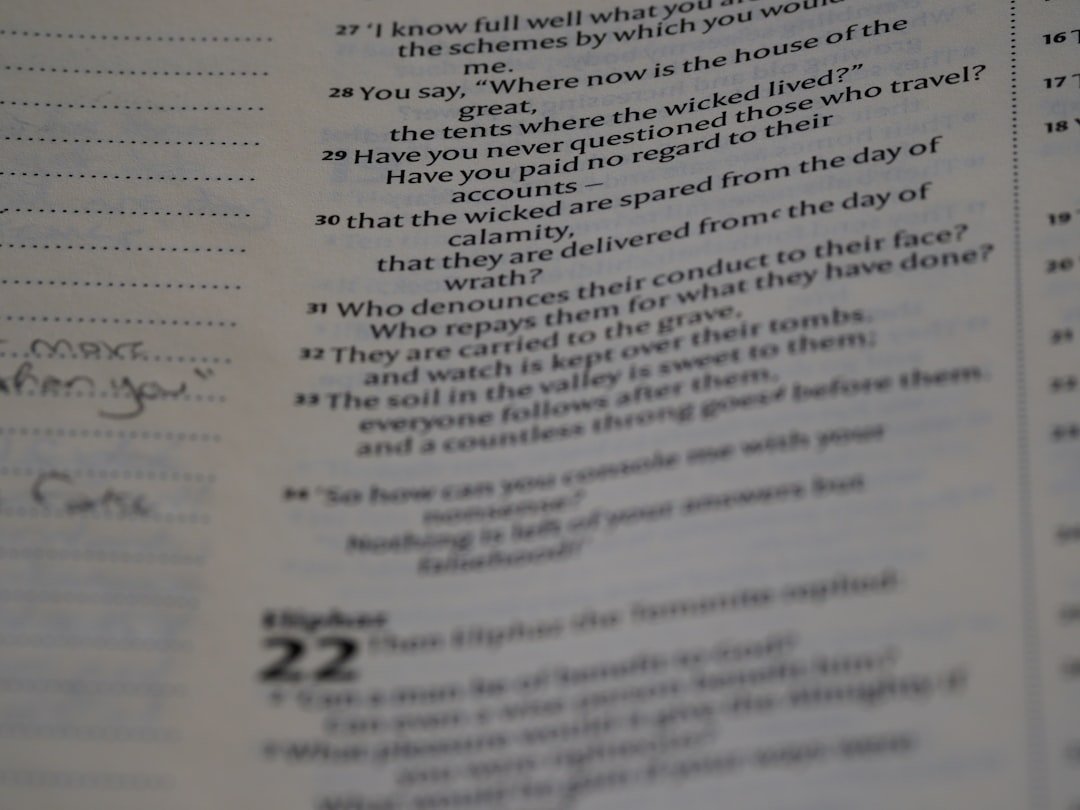 27 'I know full well what you
the schemes by which you would
me.
28 You say, "Where now is the house of the
great,
the tents where the wicked lived?"
29 Have you never questioned those who travel?
Have you paid no regard to their
accounts –
30 that the wicked are spared from the day of
calamity,
that they are delivered fromc the day of
wrath?
31 Who denounces their conduct to their face?
Who repays them for what they have done?
32 They are carried to the grave,
and watch is kept over their tombs.
33 The soil in the valley is sweet to them;
everyone follows after them,
and a countless throng goes before them.
34 'So how can you console me with your
nonsense?
Nothing is left of your answers but
falsehood!'
Eliphaz
22 Then Eliphaz the Temanite replied:
'Can a man be of benefit to God?
Can even a wise person benefit him?
What pleasure would it give the Almighty if
you were righteous?
when you"
16
17
18
19
20
21
22